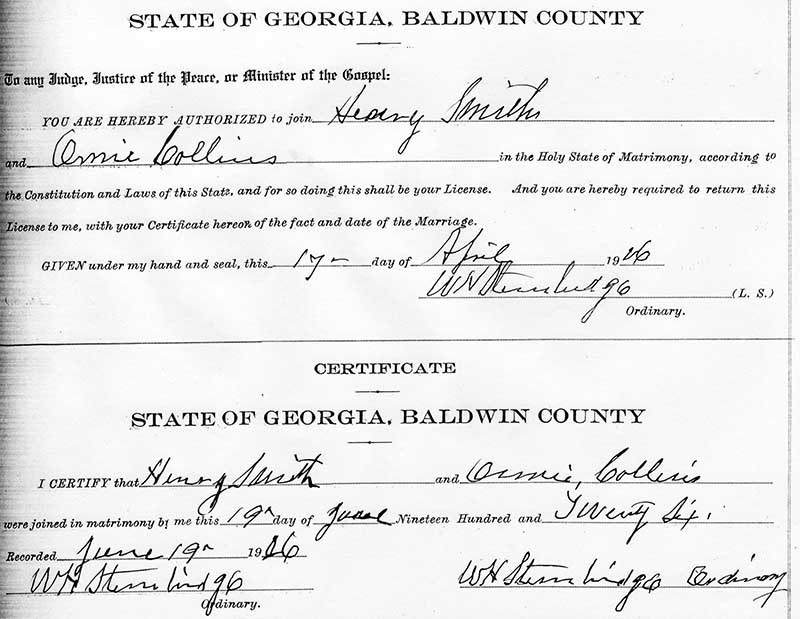 STATE OF GEORGIA, BALDWIN COUNTY
To any Judge, Justice of the Peace, or Minister of the Gospel:
YOU ARE HEREBY AUTHORIZED to join Henry Smith
and Omie Collins in the Holy State of Matrimony, according to
the Constitution and Laws of this State, and for so doing this shall be your License. And you are hereby required to return this
License to me, with your Certificate hereon of the fact and date of the Marriage.
GIVEN under my hand and seal, this 17 day of April 1926
WH Stembridge (L. S.)
Ordinary.
CERTIFICATE
STATE OF GEORGIA, BALDWIN COUNTY
I CERTIFY that Henry Smith and Collins
were joined in matrimony by me this 19 day of June Nineteen Hundred and Twenty Six.
Recorded June 19 1926
WH Stembridge WH Stembridge Ordinary
Ordinary.